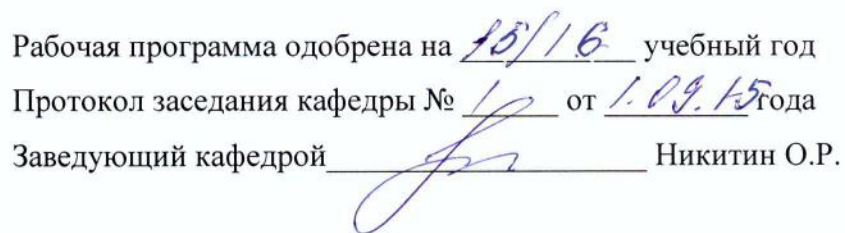 Рабочая программа одобрена на 15/16 учебный год
Протокол заседания кафедры № 1 от 1.09.15 года
Заведующий кафедрой Никитин О.Р.